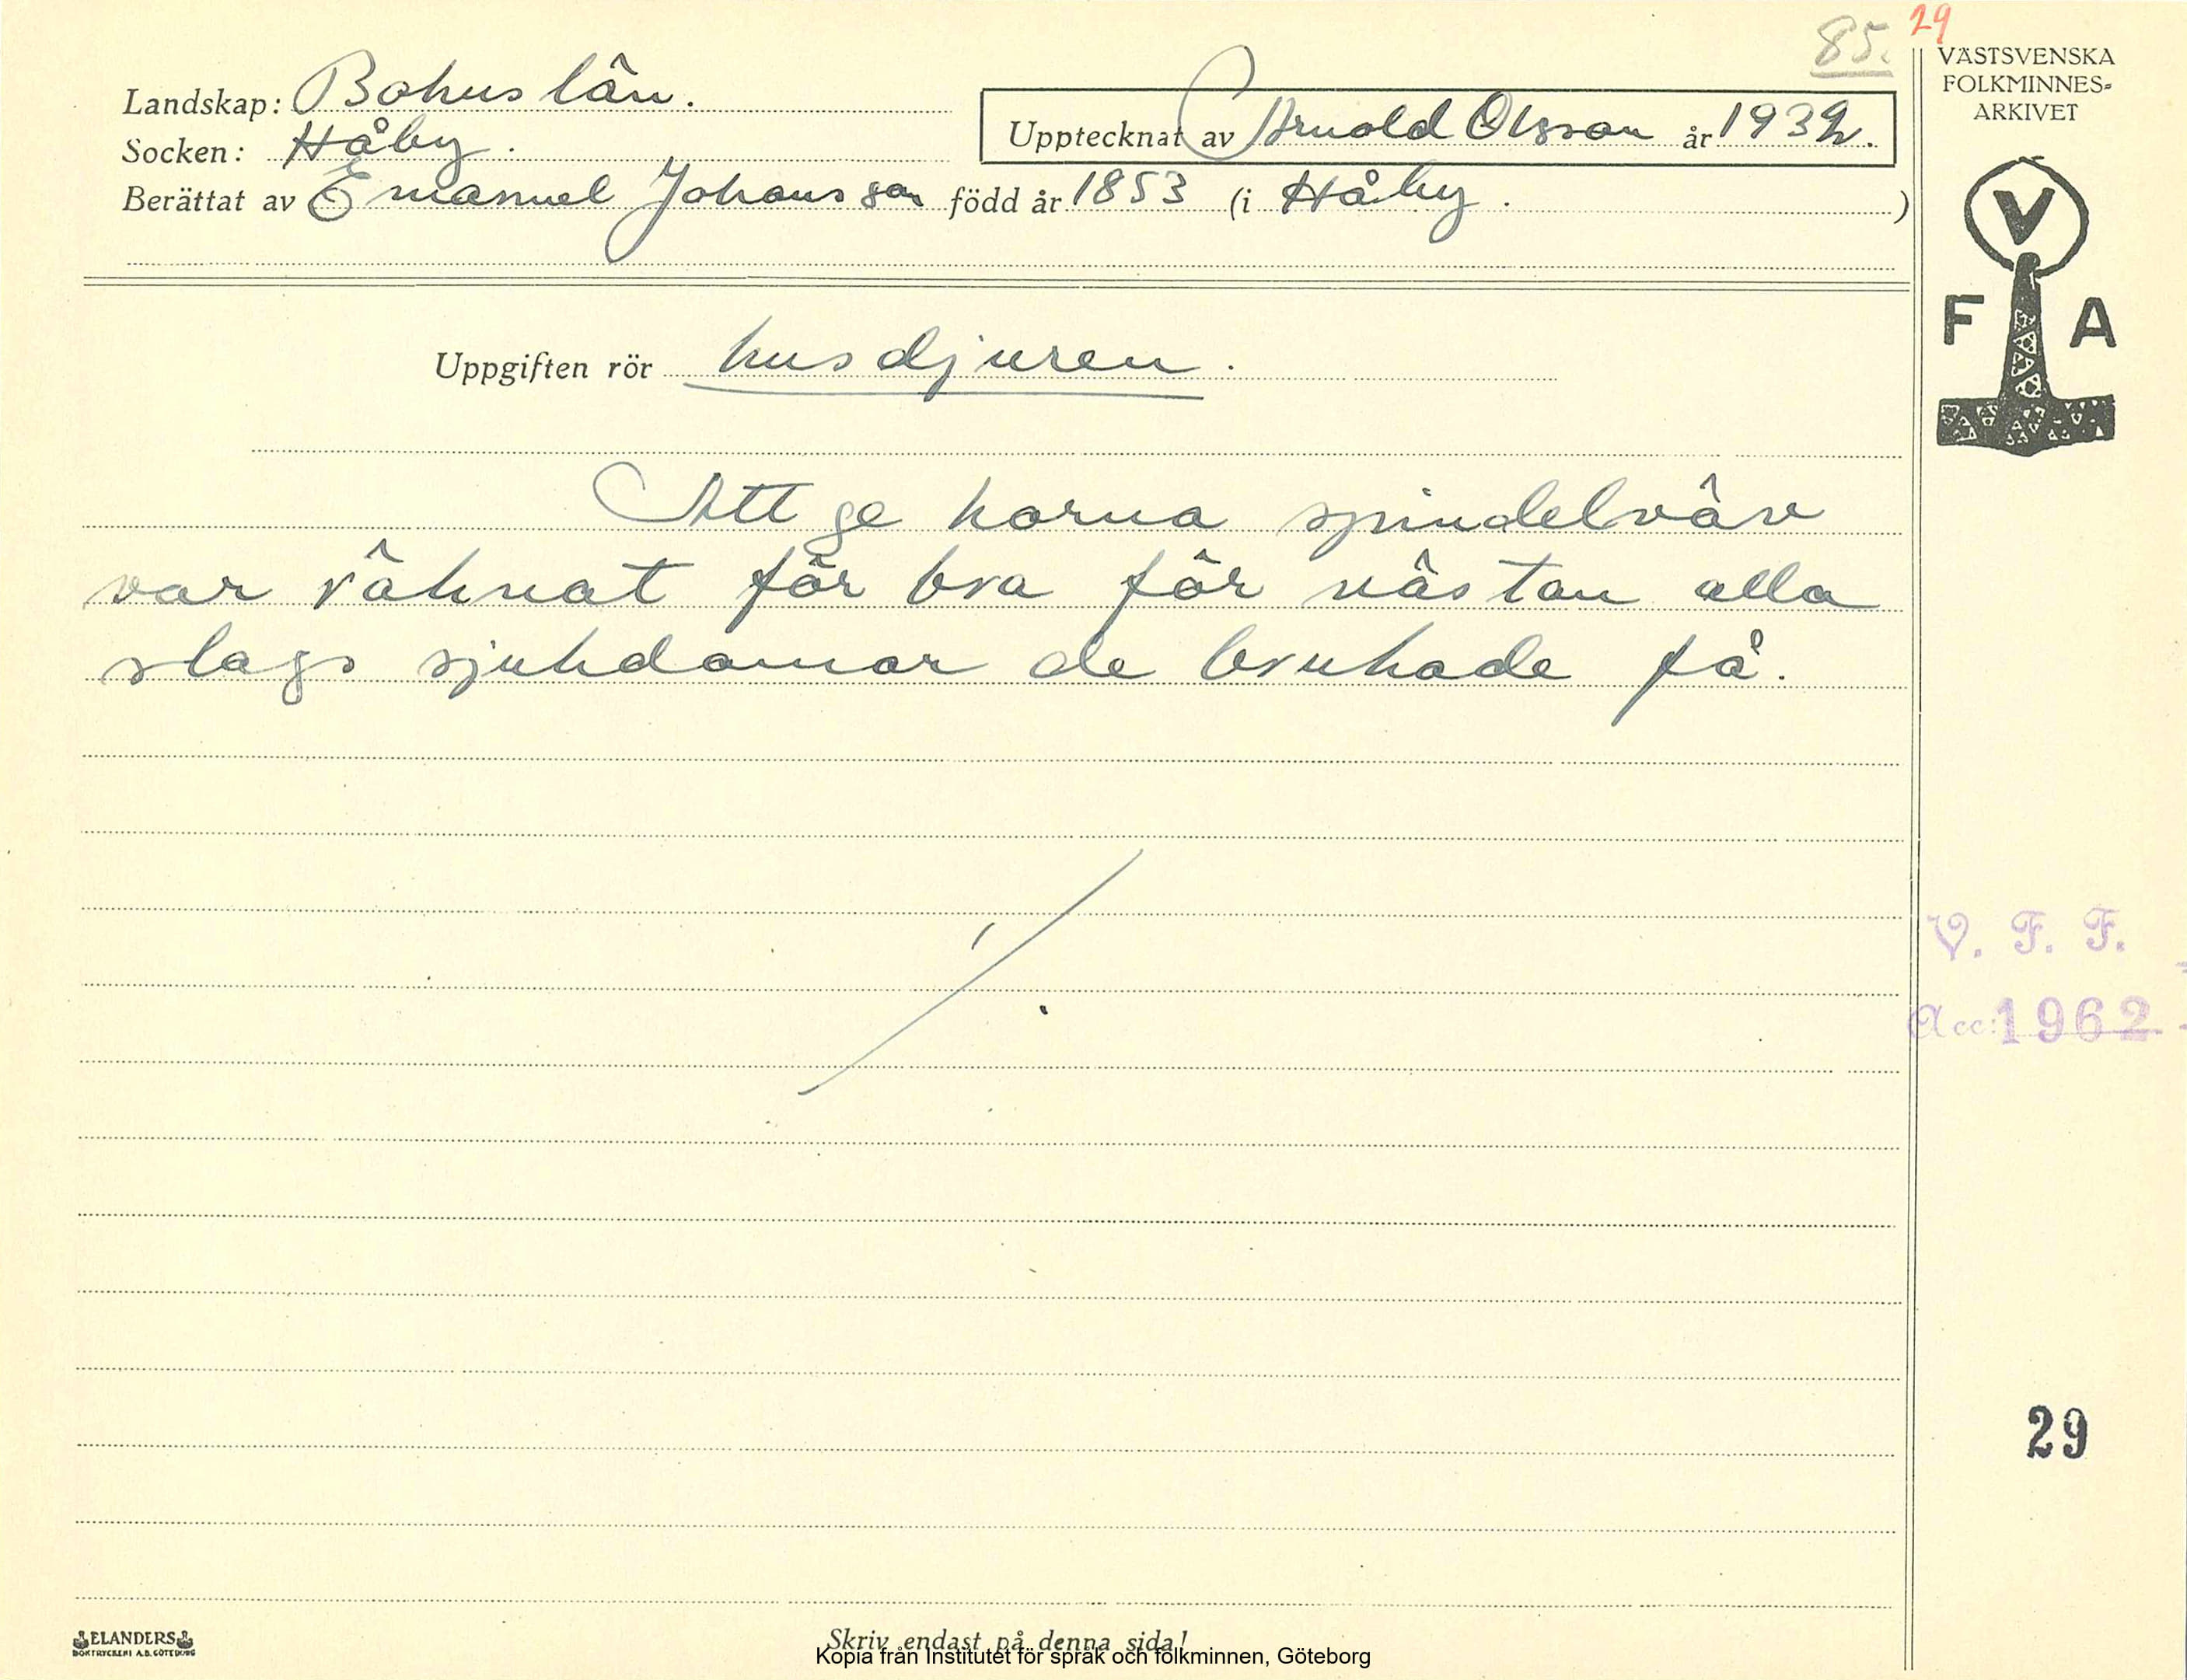 85. 29
VÄSTSVENSKA
FOLKMINNES-
ARKIVET
Landskap: Bohuslän.
Upptecknat av Arnold Olsson år 1932.
Socken: Håby.
Berättat av Emanuel Johansson född år 1853 (i Håby. )
V
F A
Uppgiften rör husdjuren.
Att ge korna spindelväv
var räknat för bra för nästan alla
slags sjukdomar de brukade få.
V. F. F.
Acc: 1962
29
ELANDERS
BOKTRYCKERI A.B. GÖTEBORG
Skriv endast på denna sida!
Kopia från Institutet för språk och folkminnen, Göteborg